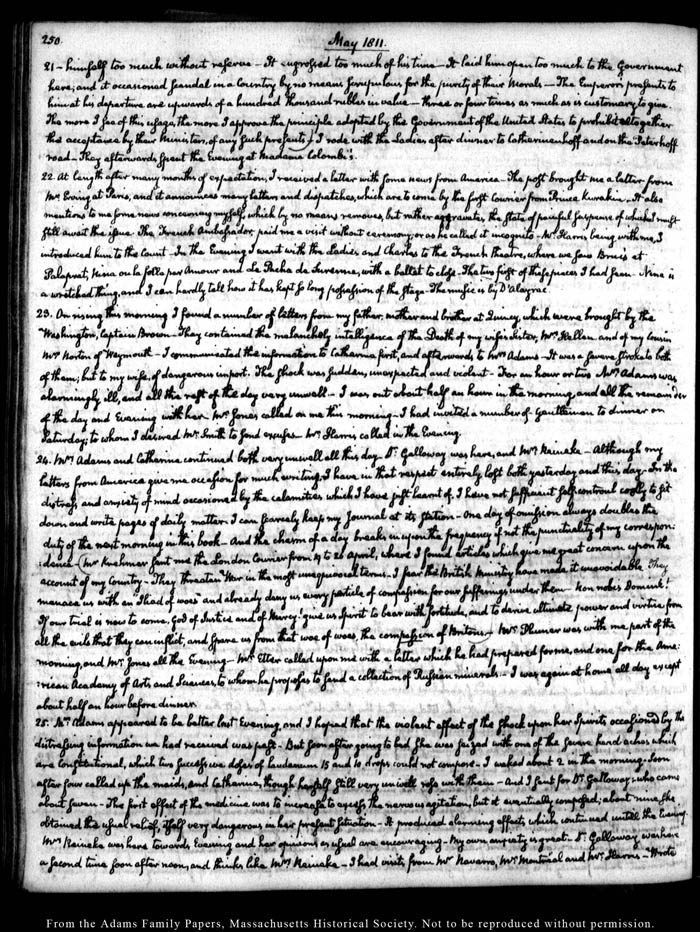 250.
May 1811.
21 – himself too much without reserve – It engrossed too much of his time – It laid him open too much to the Government
here; and it occasioned scandal in a Country by no means scrupulous for the purity of their Morals – The Emperor's presents to
him at his departure are upwards of a hundred thousand rubles in value – three or four times as much as is customary to give.
The more I see of this usage, the more I approve the principle adopted by the Government of the United States to prohibit altogether
the acceptance by their Ministers, of any such presents. I rode with the Ladies after dinner to Catherinenhoff and on the Peterhoff
road – They afterwards spent the Evening at Madame Colombi's.
22. At length after many months of expectation, I received a letter with some news from America – The post brought me a letter from
Mr Erving at Paris, and it announces many letters and dispatches, which are to come by the first Courier from Prince Kurakin. It also
mentions to me some news concerning myself, which by no means removes, but rather aggravates, the state of painful suspense of which I must
still await the issue. The French Ambassador paid me a visit without ceremony, or as he called it incognito – Mr Harris being with me, I
introduced him to the Count – In the Evening I went with the Ladies and Charles to the French theatre, where we saw Brueis et
Palaprat, Nina ou la folle par Amour and Le Pacha de Suresne, with a ballet to close. The two first of these pieces I had seen – Nina is
a wretched thing, and I can hardly tell how it has kept so long possession of the Stage. The music is by D'alayrac
23. On rising this morning I found a number of letters from my father, mother and brother at Quincy, which were brought by the
Washington, Captain Brown – They contained the melancholy intelligence of the Death of my wife's sister, Mrs Hellen and of my Cousin
Mrs Norton of Weymouth – I communicated the information to Catharine first, and afterwards to Mrs Adams – It was a severe stroke to both
of them; but to my wife, of dangerous import. The shock was sudden, unexpected and violent – For an hour or two Mrs Adams was
alarmingly ill, and all the rest of the day very unwell – I was out about half an hour in the morning, and all the remainder
of the day and Evening with her. Mr Jones called on me this morning – I had invited a number of Gentlemen to dinner on
Saturday; to whom I desired Mr Smith to send excuses. Mr Harris called in the Evening.
24. Mrs Adams and Catharine continued both very unwell all this day. Dr Galloway was here, and Mrs Heinche – Although my
letters from America gave me occasion for much writing, I have in that respect entirely lost both yesterday and this day. In the
distress and anxiety of mind occasioned by the calamities which I have just learnt of, I have not sufficient self-controul coolly to sit
down and write pages of daily matter. I can scarcely keep my Journal at its station – One day of omission always doubles the
duty of the next morning in this book – And the charm of a day breaks in upon the frequency if not the punctuality of my correspon:
:dence – Mr Krehmer sent me the London Courier from 19 to 26 April, where I found articles which give me great concern upon the
account of my Country – They threaten War in the most unequivocal terms. I fear the British Ministry have made it unavoidable. They
menace us with an Iliad of woes and already deny us every particle of compassion for our sufferings under them – Non nobis Domine!
If our trial is now to come, God of Justice and of Mercy! give us spirit to bear with fortitude, and to derive ultimate power and virtue from
all the evils that they can inflict, and spare us from that woe of woes, the compassion of Britons. – Mr Plumer was with me part of the
morning, and Mr Jones all the Evening – Mr Etter called upon me with a letter which he had prepared for me, and one for the Ame:
:rican Academy of Arts and Sciences, to whom he proposes to send a collection of Russian minerals. – I was again at home all day except
about half an hour before dinner.
25. Mrs Adams appeared to be better last Evening, and I hoped that the violent effect of the shock upon her Spirits occasioned by the
distressing information we had received was past – But soon after going to bed she was seized with one of the severe head-aches which
are Constitutional, which two successive doses of laudanum 15 and 10 drops could not compose – I waked about 2 in the morning. Soon
after four called up the maids, and Catharine, though herself still very unwell rose with them – And I sent for Dr Galloway, who came
about seven – The first effect of the medicine was to increase to excess the nervous agitation, but it eventually composed; about nine, she
obtained the usual relief, itself very dangerous in her present situation – It produced alarming effects which continued untill the Evening.
Mrs Heinche was here towards Evening and her opinions as usual are encouraging – My own anxiety is great. Dr Galloway was here
a second time soon after noon, and thinks like Mrs Heinche – I had visits from Mr Navarro, Mr Montréal and Mr Harris – Wrote
From the Adams Family Papers, Massachusetts Historical Society. Not to be reproduced without permission.